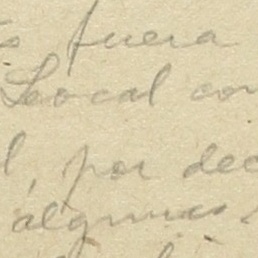 fuera
Leocal con
l, por dec
algunas